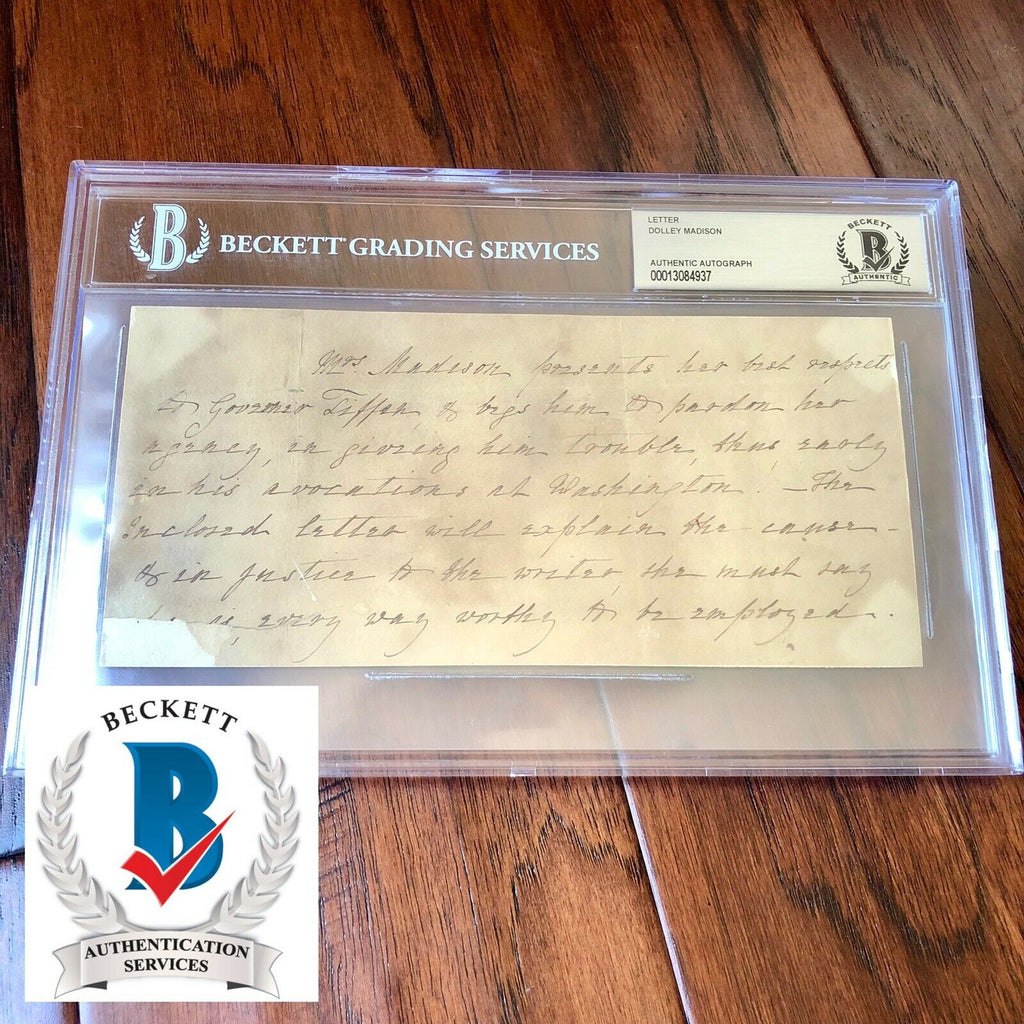 BECKETT GRADING SERVICES
LETTER
DOLLEY MADISON
AUTHENTIC AUTOGRAPH
00013084937
BECKETT
B
AUTHENTIC
Mrs. Madison presents her best respects
to Governor Tiffen, & begs him to pardon her
agency, in giving him trouble, thus early
in his avocations at Washington. — The
Inclosed letter will explain the cause -
& in justice to the writer, she must say
is, every way worthy to be employed.
BECKETT
B
AUTHENTICATION
SERVICES